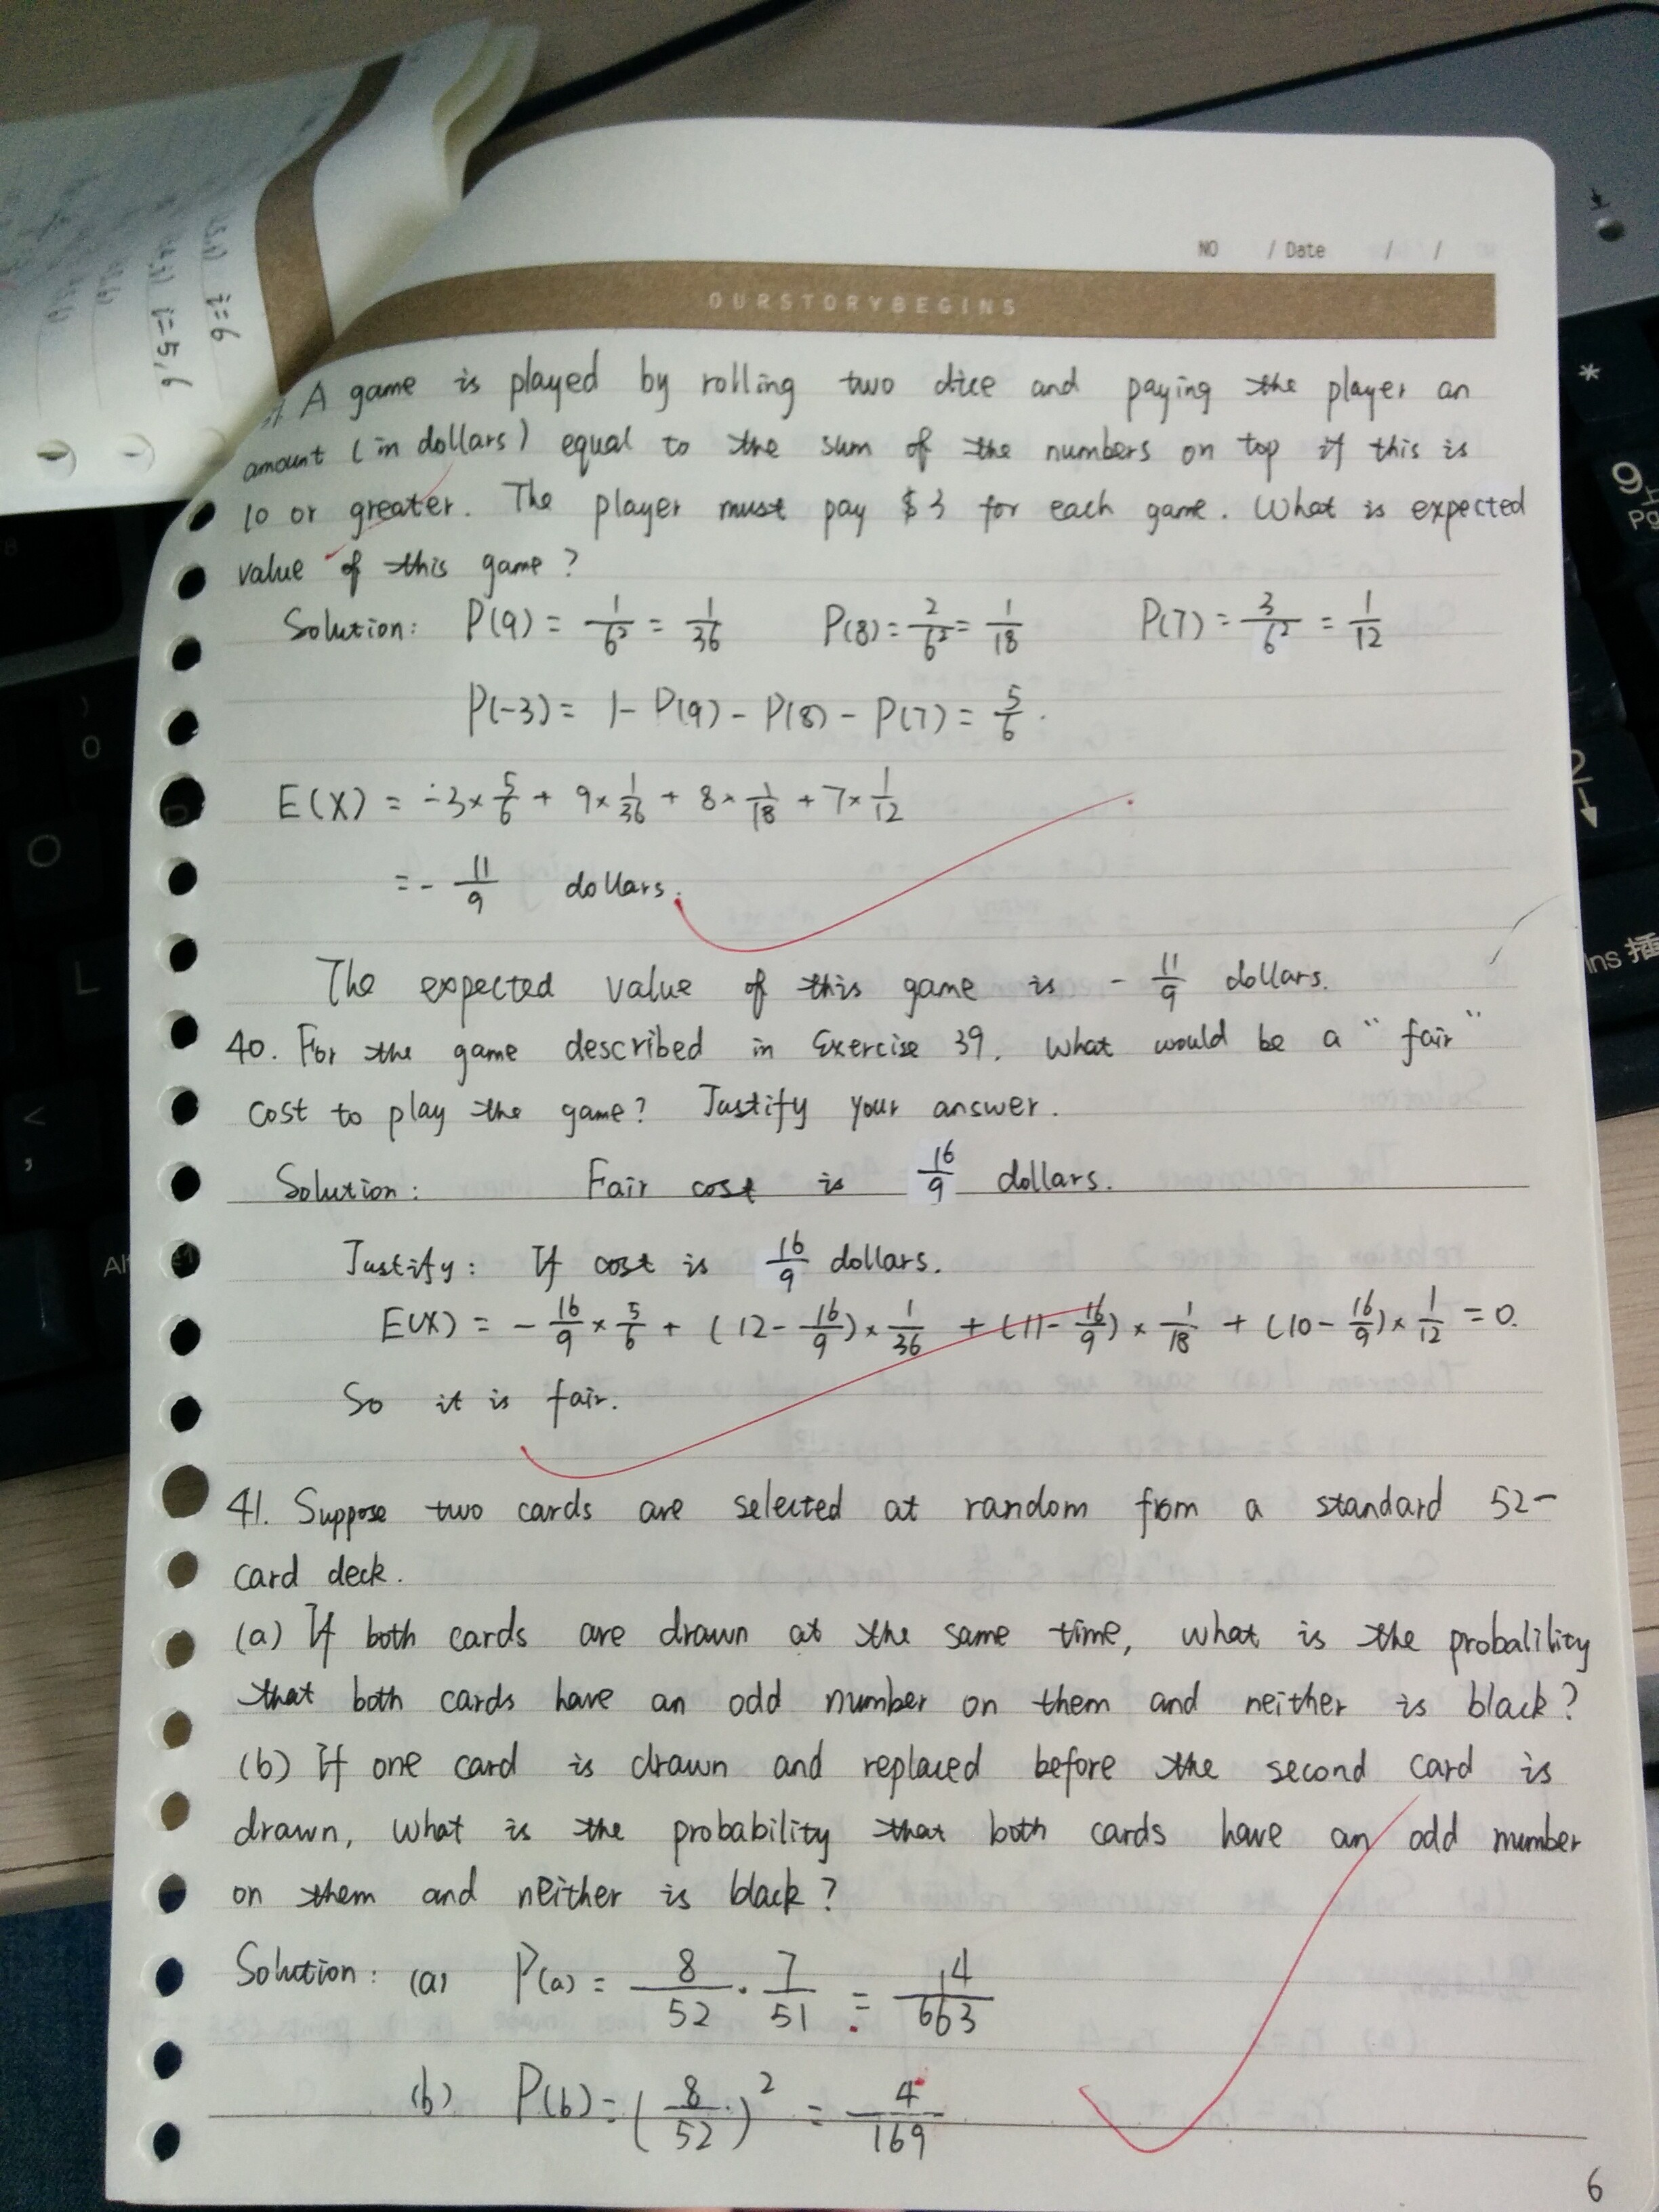 NO / Date / /
OURSTORYBEGINS
A game is played by rolling two dice and paying the player an
amount (in dollars) equal to the sum of the numbers on top if this is
10 or greater. The player must pay $3 for each game. What is expected
value of this game?
Solution: P(9) = 1/6² = 1/36 P(8) = 2/6² = 1/18 P(7) = 3/6² = 1/12
P(-3) = 1 - P(9) - P(8) - P(7) = 5/6.
E(X) = -3 × 5/6 + 9 × 1/36 + 8 × 1/18 + 7 × 1/12
= - 11/9 dollars.
The expected value of this game is - 11/9 dollars.
40. For the game described in Exercise 39. What would be a "fair"
cost to play the game? Justify your answer.
Solution: Fair cost is 16/9 dollars.
Justify: If cost is 16/9 dollars.
E(X) = - 16/9 × 5/6 + (12 - 16/9) × 1/36 + (11 - 16/9) × 1/18 + (10 - 16/9) × 1/12 = 0.
So it is fair.
41. Suppose two cards are selected at random from a standard 52-
card deck.
(a) If both cards are drawn at the same time, what is the probalility
that both cards have an odd number on them and neither is black?
(b) If one card is drawn and replaced before the second card is
drawn, what is the probability that both cards have an odd number
on them and neither is black?
Solution: (a) P(a) = 8/52 · 7/51 = 14/663
(b) P(b) = (8/52)² = 4/169
6
i=6
i=5,6
9
Pg
*
0
O
L
<
,
Alt
2
Ins 插